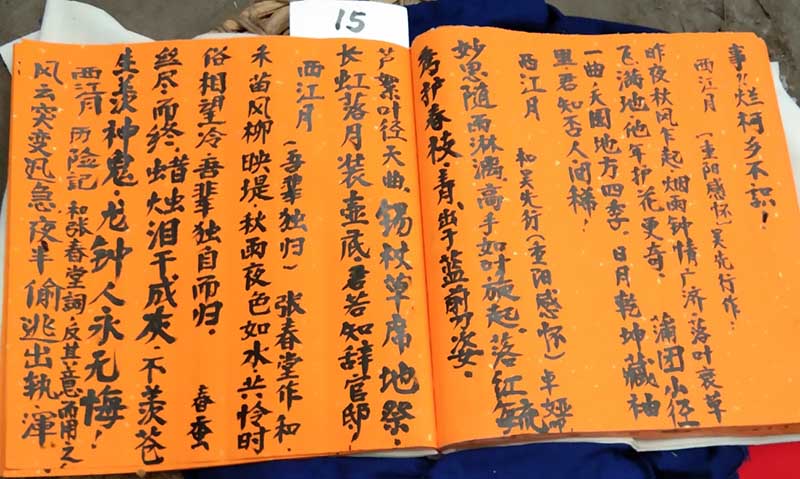 15
事烂柯乡不识！
西江月 （重阳感怀）吴先行作：
昨夜秋风乍起，烟雨钟情广济，落叶衰草
飞满地，他年护花更奇。 蒲团小径
一曲，天圆地方四季，日月乾坤藏袖
里，君知否人间稀！
西江月 和吴先行（重阳感怀）卓
妙思随雨淋漓，高手如时旋起。落红毓
秀护春枝，青出于蓝前 姿。
芦絮叶径天曲，锡杖草席地祭，
长虹落月装壶底，君若知辞官邸！
西江月 （吾辈独归） 张春堂作和.
禾苗风柳映堤，秋雨夜色如水，共怜时
俗相望冷，吾辈独自而归。 春蚕
丝尽而终，蜡烛泪干成灰，不羡苍
生羡神鬼，龙钟人永无悔！
西江月 历险记 和张春堂詞.反其意而用之
风云突变 急，夜半偷逃出